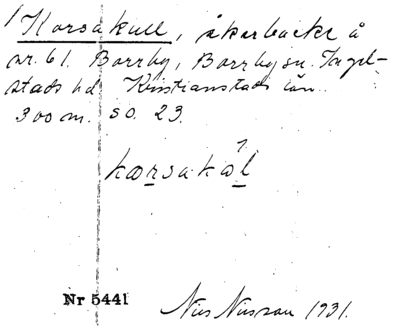 Korsakull, åkerbacke å
nr. 61. Borrby, Borrby sn. Ingel-
stads hd Kristianstads län.
300 m. SO. 23.
kɷrsakɷ̂l
Nr 5441
Nils Nilsson 1931.